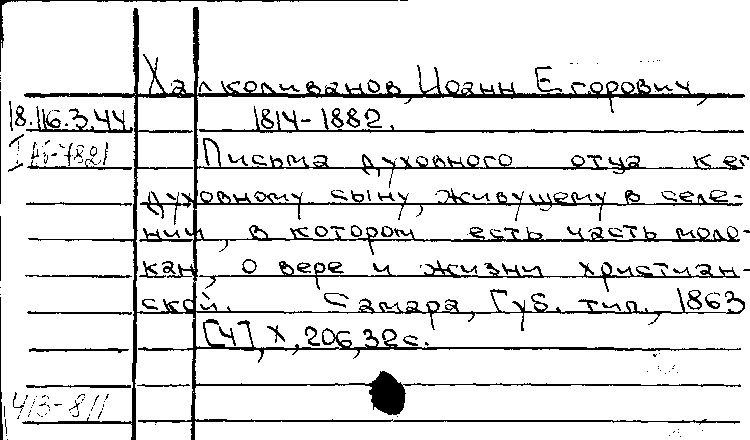 Халколиванов, Иоанн Егорович,
18.116.3.44. 1814-1882.
I Аб-7821 Письма духовного отца к ег
духовному сыну, живущему в селе-
нии, в котором есть часть моло-
кан, о вере и жизни христиан-
ской. Самара, Губ. тип., 1863
[4], X, 206, 32с.
413-811